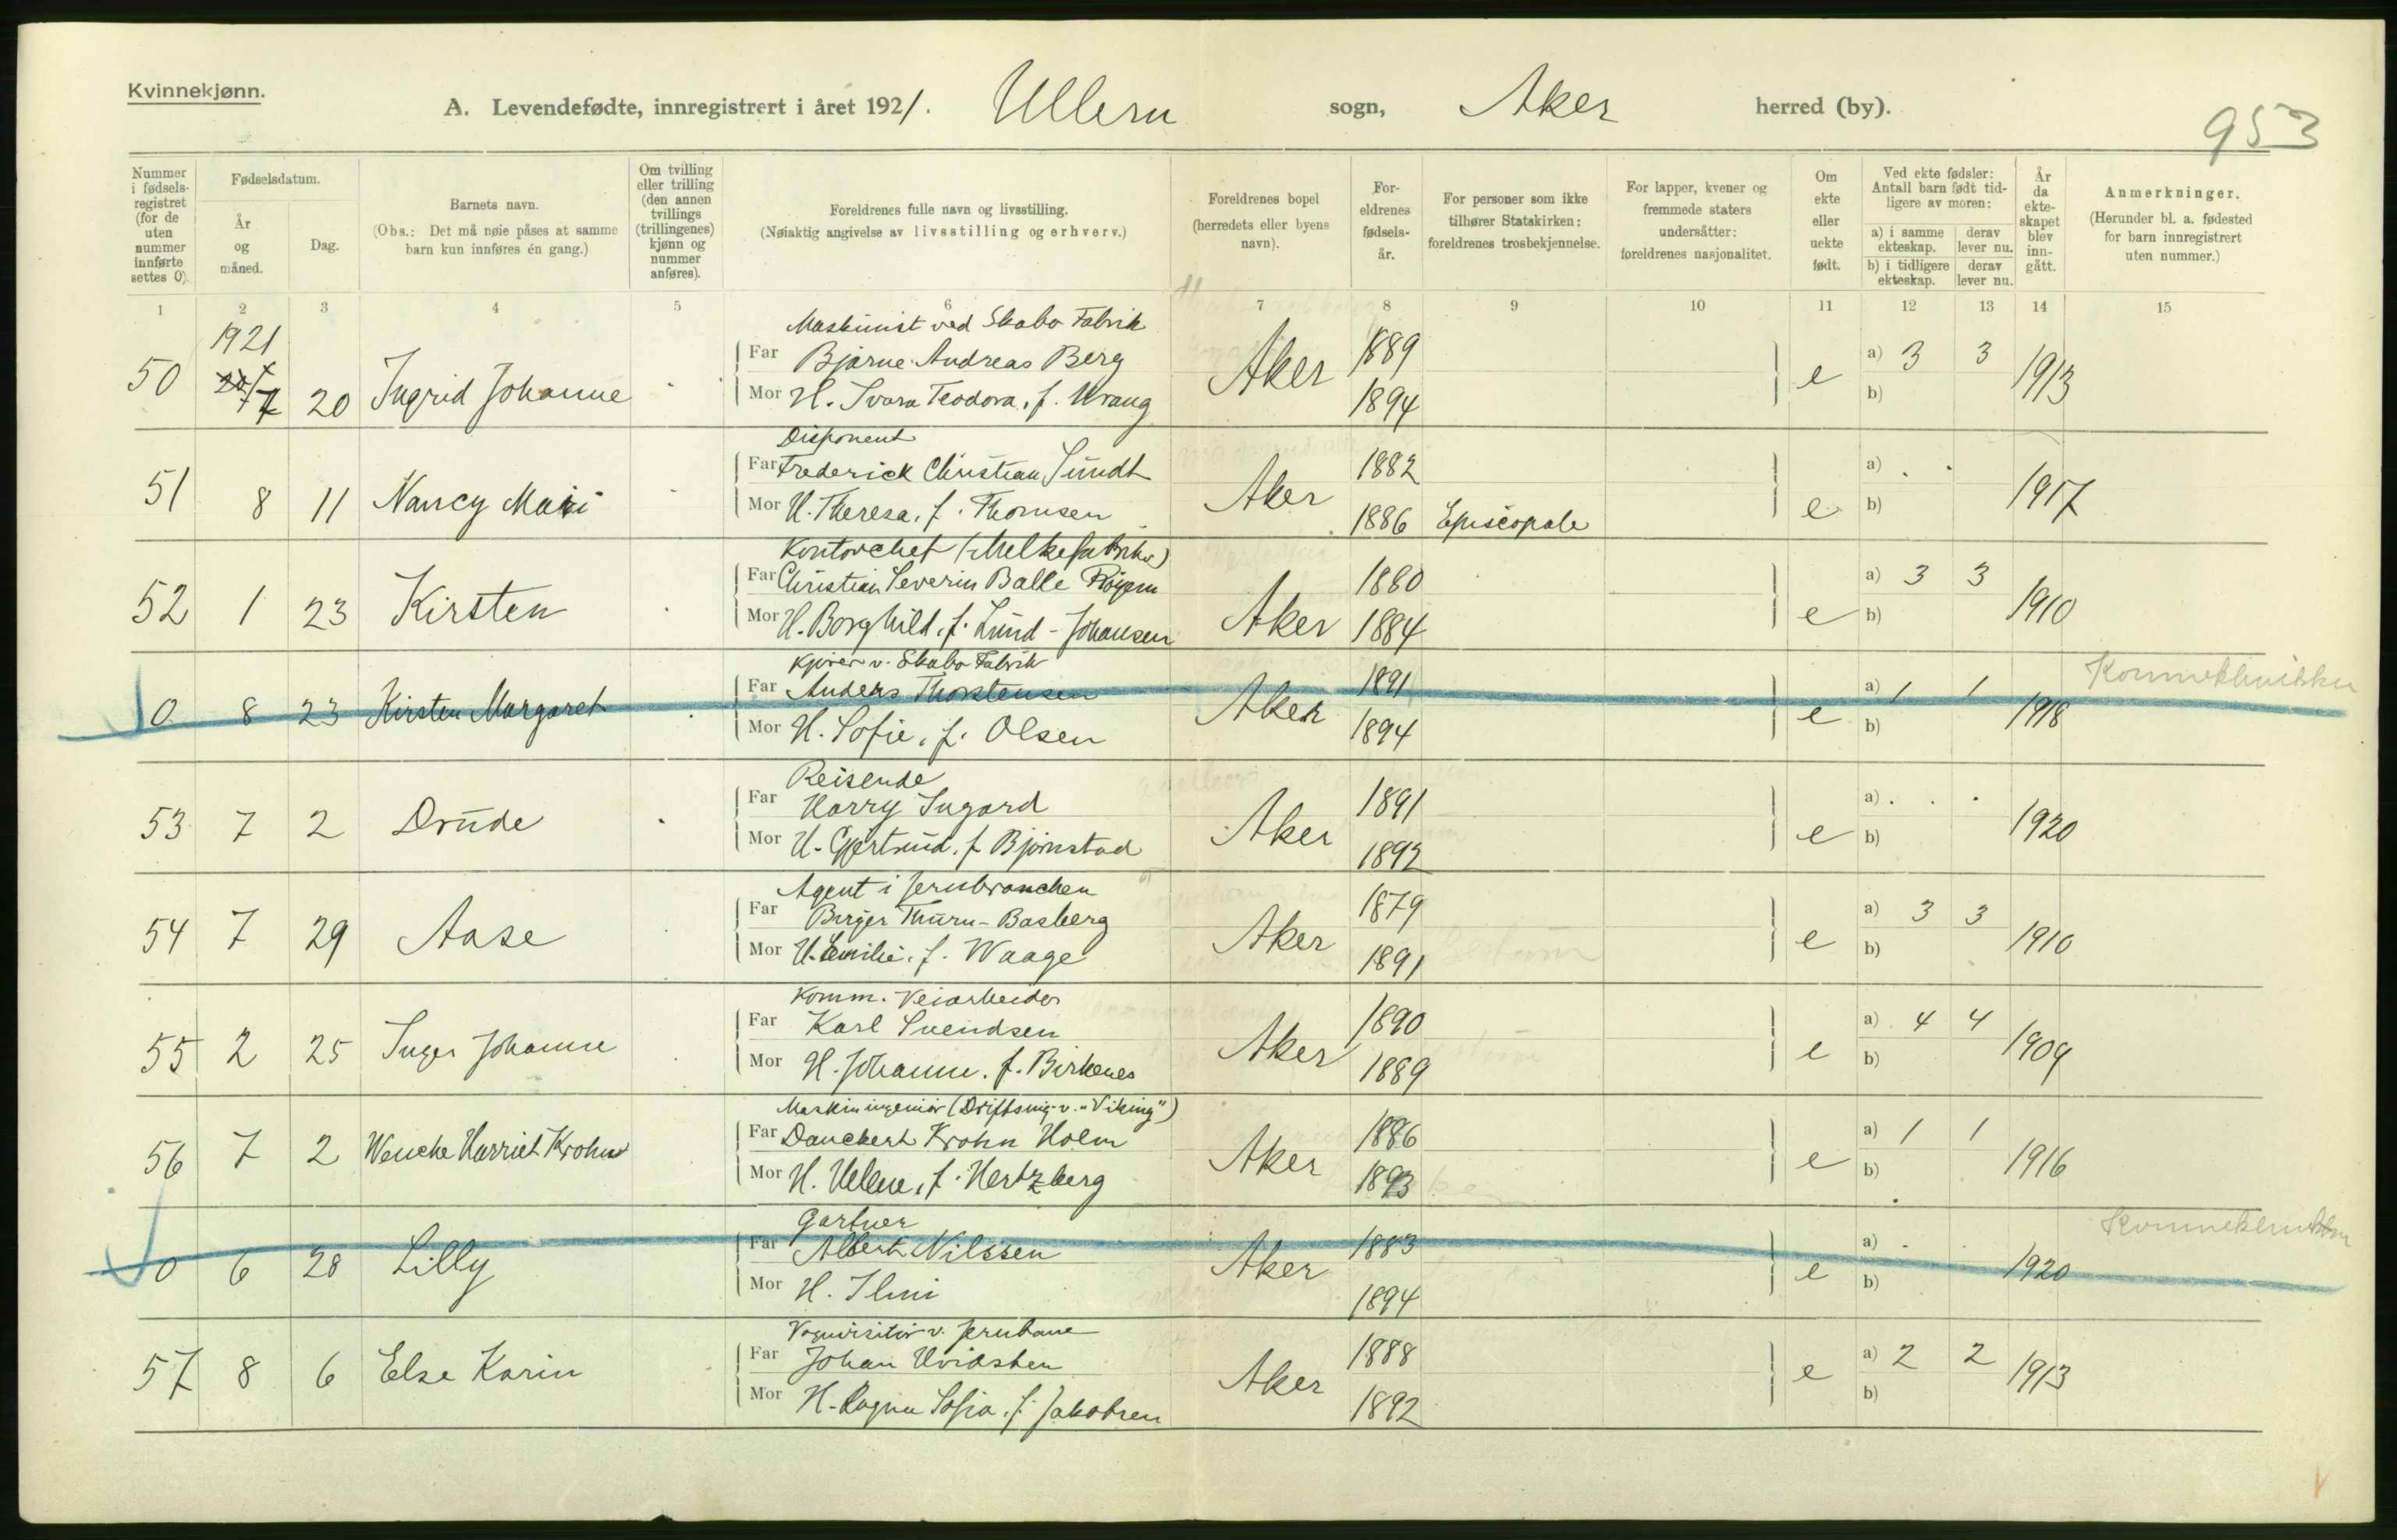 Kvinnekjønn.
A. Levendefødte, innregistrert i året 1921. Ullern sogn, Aker herred (by).
953
Nummer i fødselsregistret (for de uten nummer innførte settes 0).
Fødselsdatum.
År og måned.
Dag.
Barnets navn.
(Obs.: Det må nøie påses at samme barn kun innføres én gang.)
Om tvilling eller trilling (den annen tvillings (trillingenes) kjønn og nummer anføres).
Foreldrenes fulle navn og livsstilling.
(Nøiaktig angivelse av livsstilling og erhverv.)
Foreldrenes bopel (herredets eller byens navn).
Foreldrenes fødselsår.
For personer som ikke tilhører Statskirken: foreldrenes trosbekjennelse.
For lapper, kvener og fremmede staters undersåtter: foreldrenes nasjonalitet.
Om ekte eller uekte født.
Ved ekte fødsler: Antall barn født tidligere av moren:
a) i samme ekteskap. derav lever nu.
b) i tidligere ekteskap. derav lever nu.
År da ekteskapet blev inngått.
Anmerkninger.
(Herunder bl. a. fødested for barn innregistrert uten nummer.)
1 2 3 4 5 6 7 8 9 10 11 12 13 14 15
1921
Maskinist ved Skabo Fabrik
50 7 20 Ingrid Johanne Far Bjarne Andreas Berg Aker 1889 e a) 3 3 1913
Mor H. Svara Teodora, f. Wrang 1894 b)
Disponent
51 8 11 Nancy Mari Far Frederick Christian Sundt Aker 1882 e a) . . 1917
Mor H. Theresa, f. Thomsen 1886 Episcopale b)
Kontorchef (Melkefabrikk)
52 1 23 Kirsten Far Christian Severin Balle Røyem Aker 1880 e a) 3 3 1910
Mor H. Borghild, f. Lund-Johansen 1884 b)
Kjører v. Skabo Fabrik
0 8 23 Kirsten Margaret Far Anders Thorstensen Aker 1891 e a) 1 1 1918
Mor H. Sofie, f. Olsen 1894 b)
Reisende
53 7 2 Drude Far Harry Sugard Aker 1891 e a) . . 1920
Mor H. Gjertrud, f. Bjørnstad 1892 b)
Agent i jernbranchen
54 7 29 Aase Far Birger Thurn-Basberg Aker 1879 e a) 3 3 1910
Mor H. Emilie, f. Waage 1891 b)
Komm. Veiarbeider
55 2 25 Inger Johanne Far Karl Svendsen Aker 1890 e a) 4 4 1909
Mor H. Johanne, f. Birkenes 1889 b)
Maskiningeniør (Driftsing. v. "Viking")
56 7 2 Wencke Harriet Krohn Far Danckert Krohn Holm Aker 1886 e a) 1 1 1916
Mor H. Helene, f. Hertzberg 1893 b)
Gartner
0 6 28 Lilly Far Albert Nilssen Aker 1883 e a) . . 1920
Mor H. Ilmi 1894 b)
57 8 6 Else Karin Far Johan Hvidsten Aker 1888 e a) 2 2 1913
Mor H. Ragna Sofia, f. Jakobsen 1892 b)